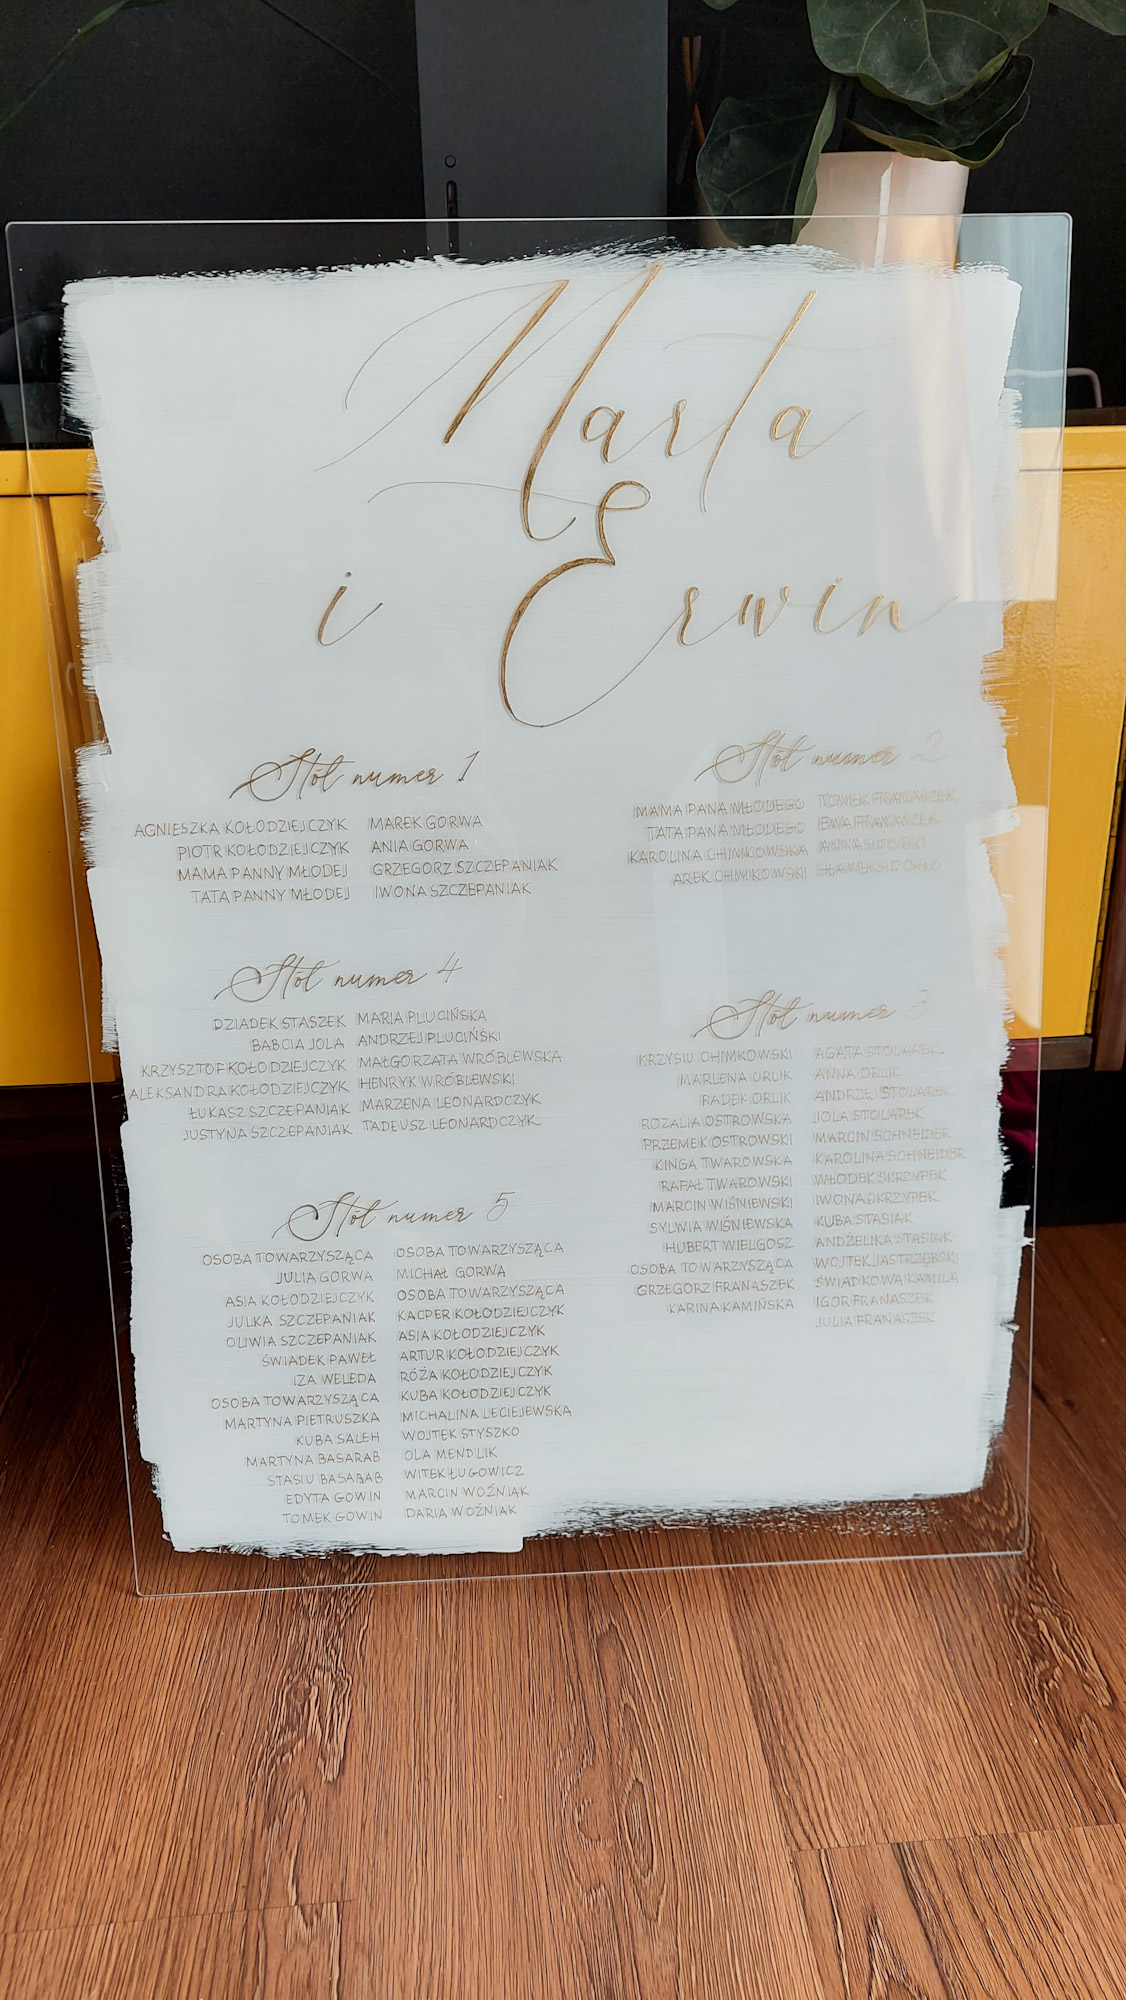 Marta
i Erwin
Stół numer 1
AGNIESZKA KOŁODZIEJCZYK MAREK GORWA
PIOTR KOŁODZIEJCZYK ANIA GORWA
MAMA PANNY MŁODEJ GRZEGORZ SZCZEPANIAK
TATA PANNY MŁODEJ IWONA SZCZEPANIAK
Stół numer 2
MAMA PANA MŁODEGO TOMEK FRANASZEK
TATA PANA MŁODEGO EWA FRANASZEK
KAROLINA CHIMKOWSKA ANNA SIDORKO
AREK CHIMKOWSKI SŁAWEK SIDORKO
Stół numer 4
DZIADEK STASZEK MARIA PLUCIŃSKA
BABCIA JOLA ANDRZEJ PLUCIŃSKI
KRZYSZTOF KOŁODZIEJCZYK MAŁGORZATA WRÓBLEWSKA
ALEKSANDRA KOŁODZIEJCZYK HENRYK WRÓBLEWSKI
ŁUKASZ SZCZEPANIAK MARZENA LEONARDCZYK
JUSTYNA SZCZEPANIAK TADEUSZ LEONARDCZYK
Stół numer 3
KRZYSIU CHIMKOWSKI AGATA STOLAREK
MARLENA ORLIK ANNA ORLIK
RADEK ORLIK ANDRZEJ STOLAREK
ROZALIA OSTROWSKA JOLA STOLAREK
PRZEMEK OSTROWSKI MARCIN SCHNEIDER
KINGA TWAROWSKA KAROLINA SCHNEIDER
RAFAŁ TWAROWSKI WŁODEK SKRZYPEK
MARCIN WIŚNIEWSKI IWONA SKRZYPEK
SYLWIA WIŚNIEWSKA KUBA STASIAK
HUBERT WIELGOSZ ANDŻELIKA STASIAK
OSOBA TOWARZYSZĄCA WOJTEK JASTRZĘBSKI
GRZEGORZ FRANASZEK ŚWIADKOWA KAMILA
KARINA KAMIŃSKA IGOR FRANASZEK
JULIA FRANASZEK
Stół numer 5
OSOBA TOWARZYSZĄCA OSOBA TOWARZYSZĄCA
JULIA GORWA MICHAŁ GORWA
ASIA KOŁODZIEJCZYK OSOBA TOWARZYSZĄCA
JULKA SZCZEPANIAK KACPER KOŁODZIEJCZYK
OLIWIA SZCZEPANIAK ASIA KOŁODZIEJCZYK
ŚWIADEK PAWEŁ ARTUR KOŁODZIEJCZYK
IZA WELEDA RÓŻA KOŁODZIEJCZYK
OSOBA TOWARZYSZĄCA KUBA KOŁODZIEJCZYK
MARTYNA PIETRUSZKA MICHALINA LECIEJEWSKA
KUBA SALEH WOJTEK STYSZKO
MARTYNA BASARAB OLA MENDLIK
STASIU BASARAB WITEK ŁUGOWICZ
EDYTA GOWIN MARCIN WOŹNIAK
TOMEK GOWIN DARIA WOŹNIAK